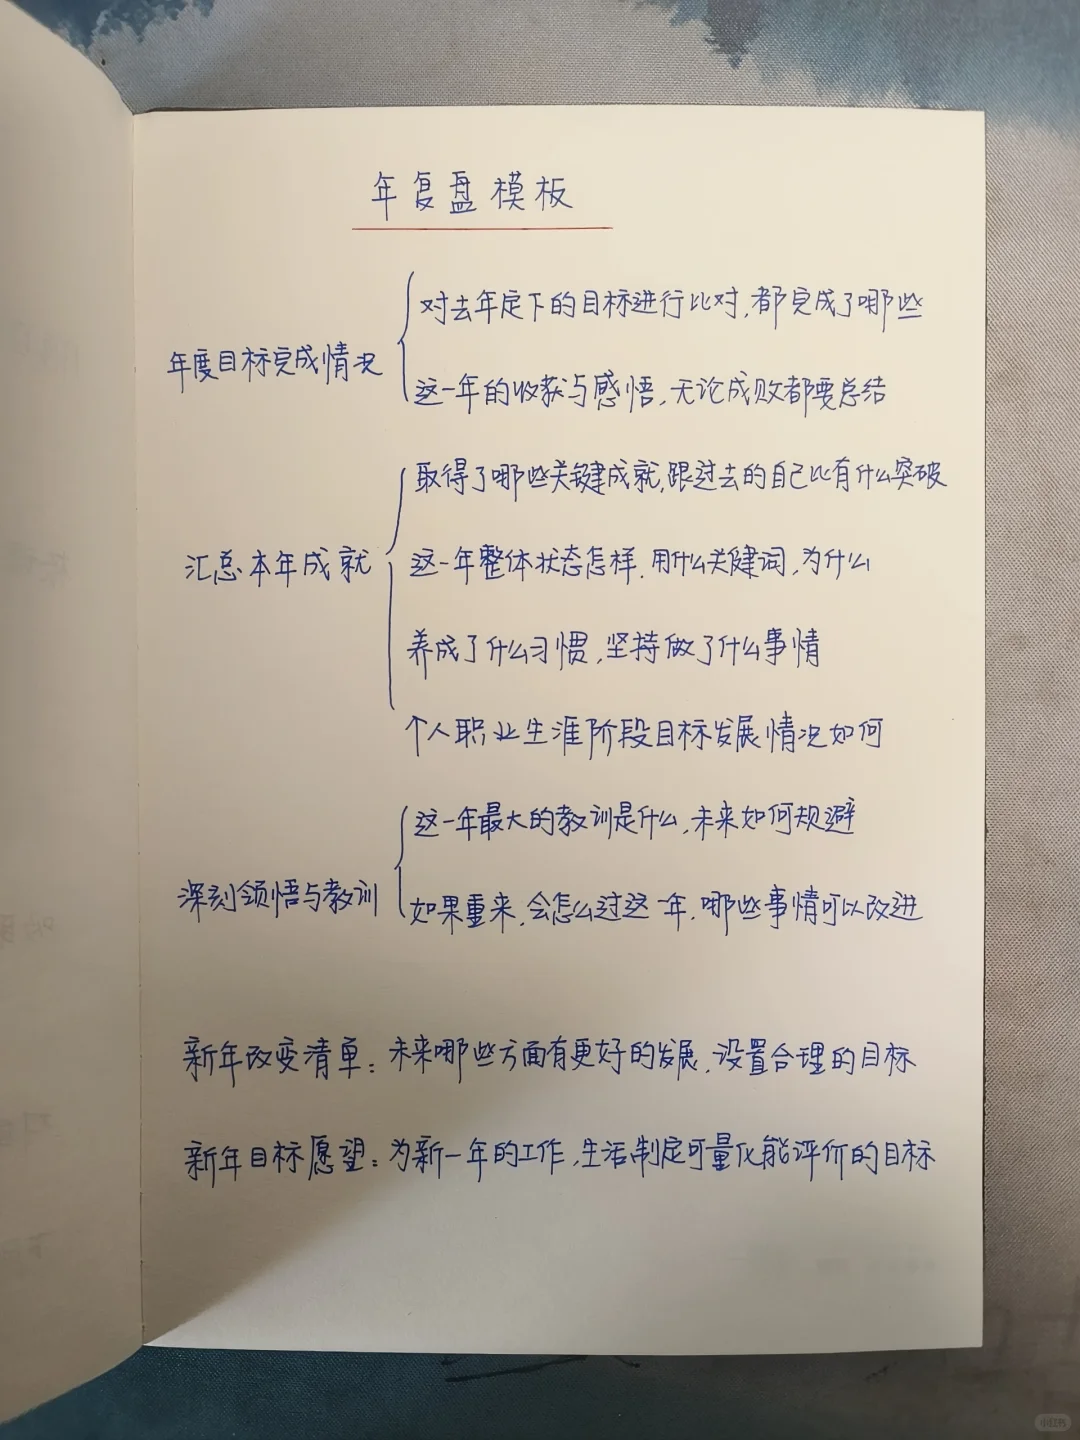 年复盘模板
对去年定下的目标进行比对,都完成了哪些
年度目标完成情况
这一年的收获与感悟,无论成败都要总结
取得了哪些关键成就,跟过去的自己比有什么突破
汇总本年成就
这一年整体状态怎样,用什么关键词,为什么
养成了什么习惯,坚持做了什么事情
个人职业生涯阶段目标发展情况如何
这一年最大的教训是什么,未来如何规避
深刻领悟与教训
如果重来,会怎么过这一年,哪些事情可以改进
新年改变清单:未来哪些方面有更好的发展,设置合理的目标
新年目标愿望:为新一年的工作,生活制定可量化能评价的目标
小红书